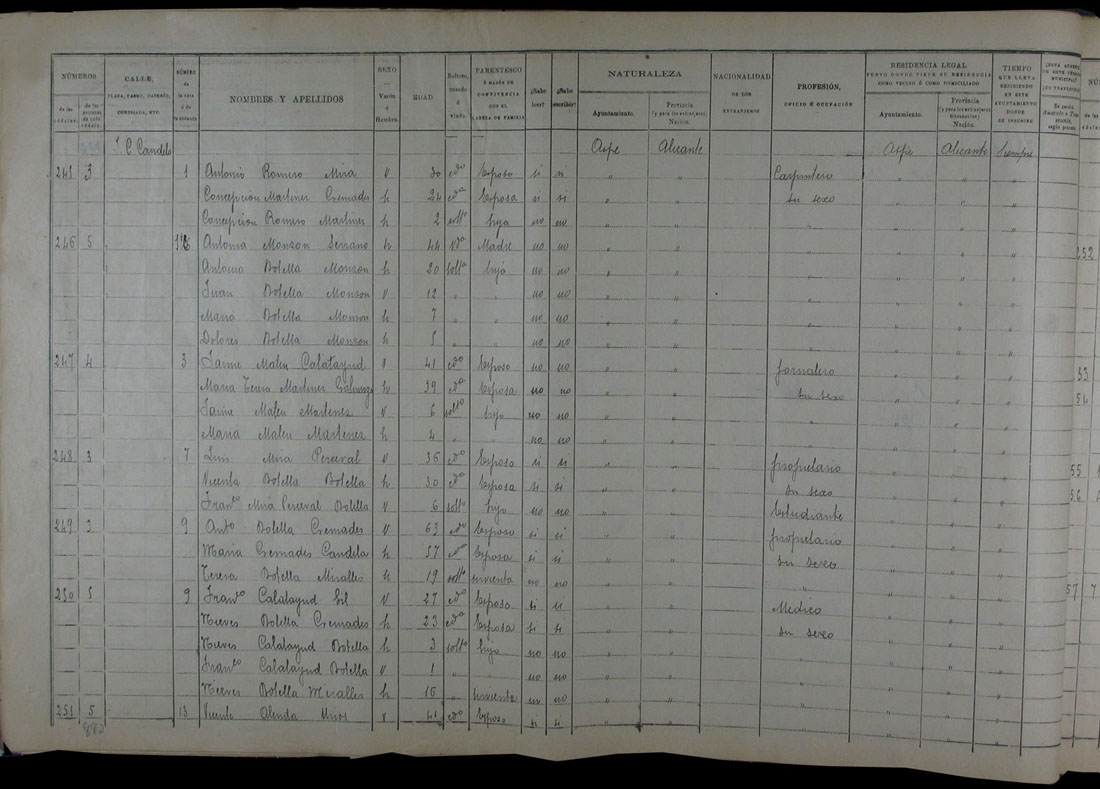 NÚMEROS CALLE, PLAZA, PASEO, CASERÍO, CORTIJADA, ETC. NÚMERO de la casa ó de la vivienda NOMBRES Y APELLIDOS SEXO — Varón ó Hembra. EDAD Soltero, casado ó viudo. PARENTESCO Ó RAZÓN DE CONVIVENCIA CON EL CABEZA DE FAMILIA ¿Sabe leer? ¿Sabe escribir? NATURALEZA NACIONALIDAD DE LOS EXTRANJEROS PROFESIÓN, OFICIO Ó OCUPACIÓN RESIDENCIA LEGAL PUNTO DONDE TIENE SU RESIDENCIA COMO VECINO Ó COMO DOMICILIADO TIEMPO QUE LLEVA RESIDIENDO EN ESTE AYUNTAMIENTO DONDE SE INSCRIBE
de las cédulas. Ayuntamiento. Provincia (y para los extranjeros) Nación. Ayuntamiento. Provincia Nación.
C Candela Aspe Alicante Aspe Alicante Siempre
245 3 1 Antonio Romero Mira v 30 cdo Esposo si si " " Carpintero " " "
Concepcion Martinez Cremades h 24 cda Esposa si si " " Su sexo " " "
Concepcion Romero Martinez h 2 solta hija no no " " " " "
246 5 Antonia Monzon Serrano h 44 Vda Madre no no " " " " "
Antonia Botella Monzon h 20 solta hija no no " " " " "
Juan Botella Monzon v 12 " " no no " " " " "
Maria Botella Monzon h 7 " " no no " " " " "
Dolores Botella Monzon h 5 " " no no " " " " "
247 4 3 Jaime Maleu Calatayud v 41 cdo Esposo no no " " Jornalero " " "
Maria Teresa Martinez h 39 cda Esposa no no " " Su sexo " " "
Jaime Maleu Martinez v 6 solto hijo no no " " " " "
Maria Maleu Martinez h 4 " " no no " " " " "
248 3 7 Luis Mira Perceval v 36 cdo Esposo si si " " propietario " " "
Vicenta Botella Botella h 30 cda Esposa si si " " Su sexo " " "
Franco Mira Perceval Botella v 6 solto hijo no no " " Estudiante " " "
249 3 9 Anto Botella Cremades v 63 cdo Esposo si si " " propietario " " "
Maria Cremades Candela h 57 cda Esposa si si " " Su sexo " " "
Teresa Botella Miralles h 19 solta sirvienta no no " " " " "
250 5 9 Franco Calatayud Gil v 27 cdo Esposo si si " " Medico " " "
Nieves Botella Cremades h 23 cda Esposa si si " " Su sexo " " "
Nieves Calatayud Botella h 3 solta hija no no " " " " "
Franco Calatayud Botella v 1 " " no no " " " " "
Nieves Botella Miralles h 16 " sirvienta no no " " " " "
251 5 13 Vicente v 41 cdo Esposo si si " " " " "